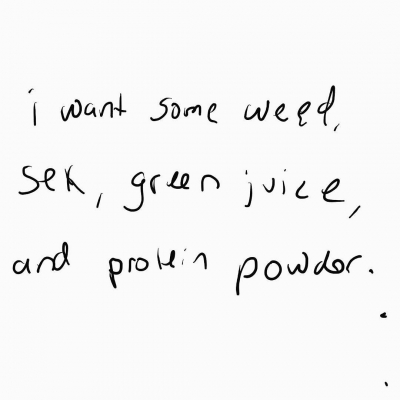 i want some weed,
sex, green juice,
and protein powder.